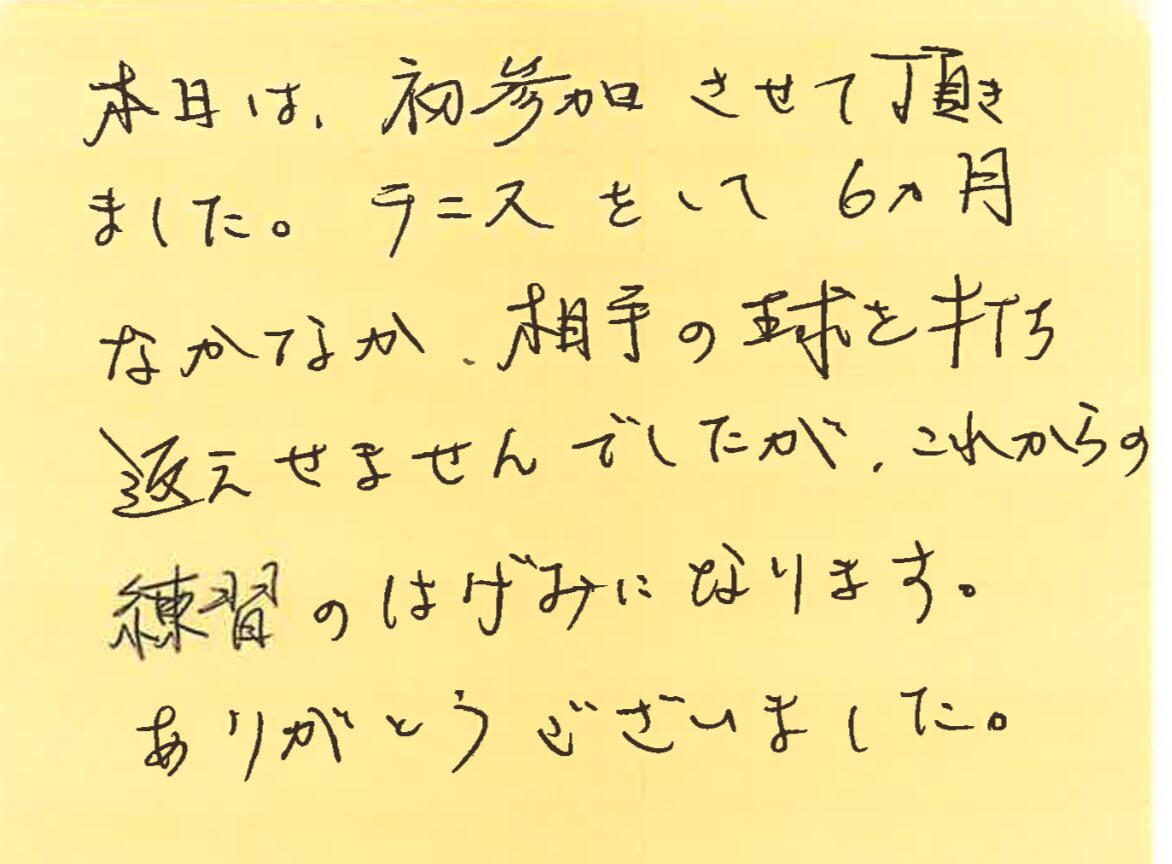 本日は、初参加させて頂き
ました。テニスをして6ヵ月
なかなか、相手の球を打ち
返えせませんでしたが、これからの
練習のはげみになります。
ありがとうございました。